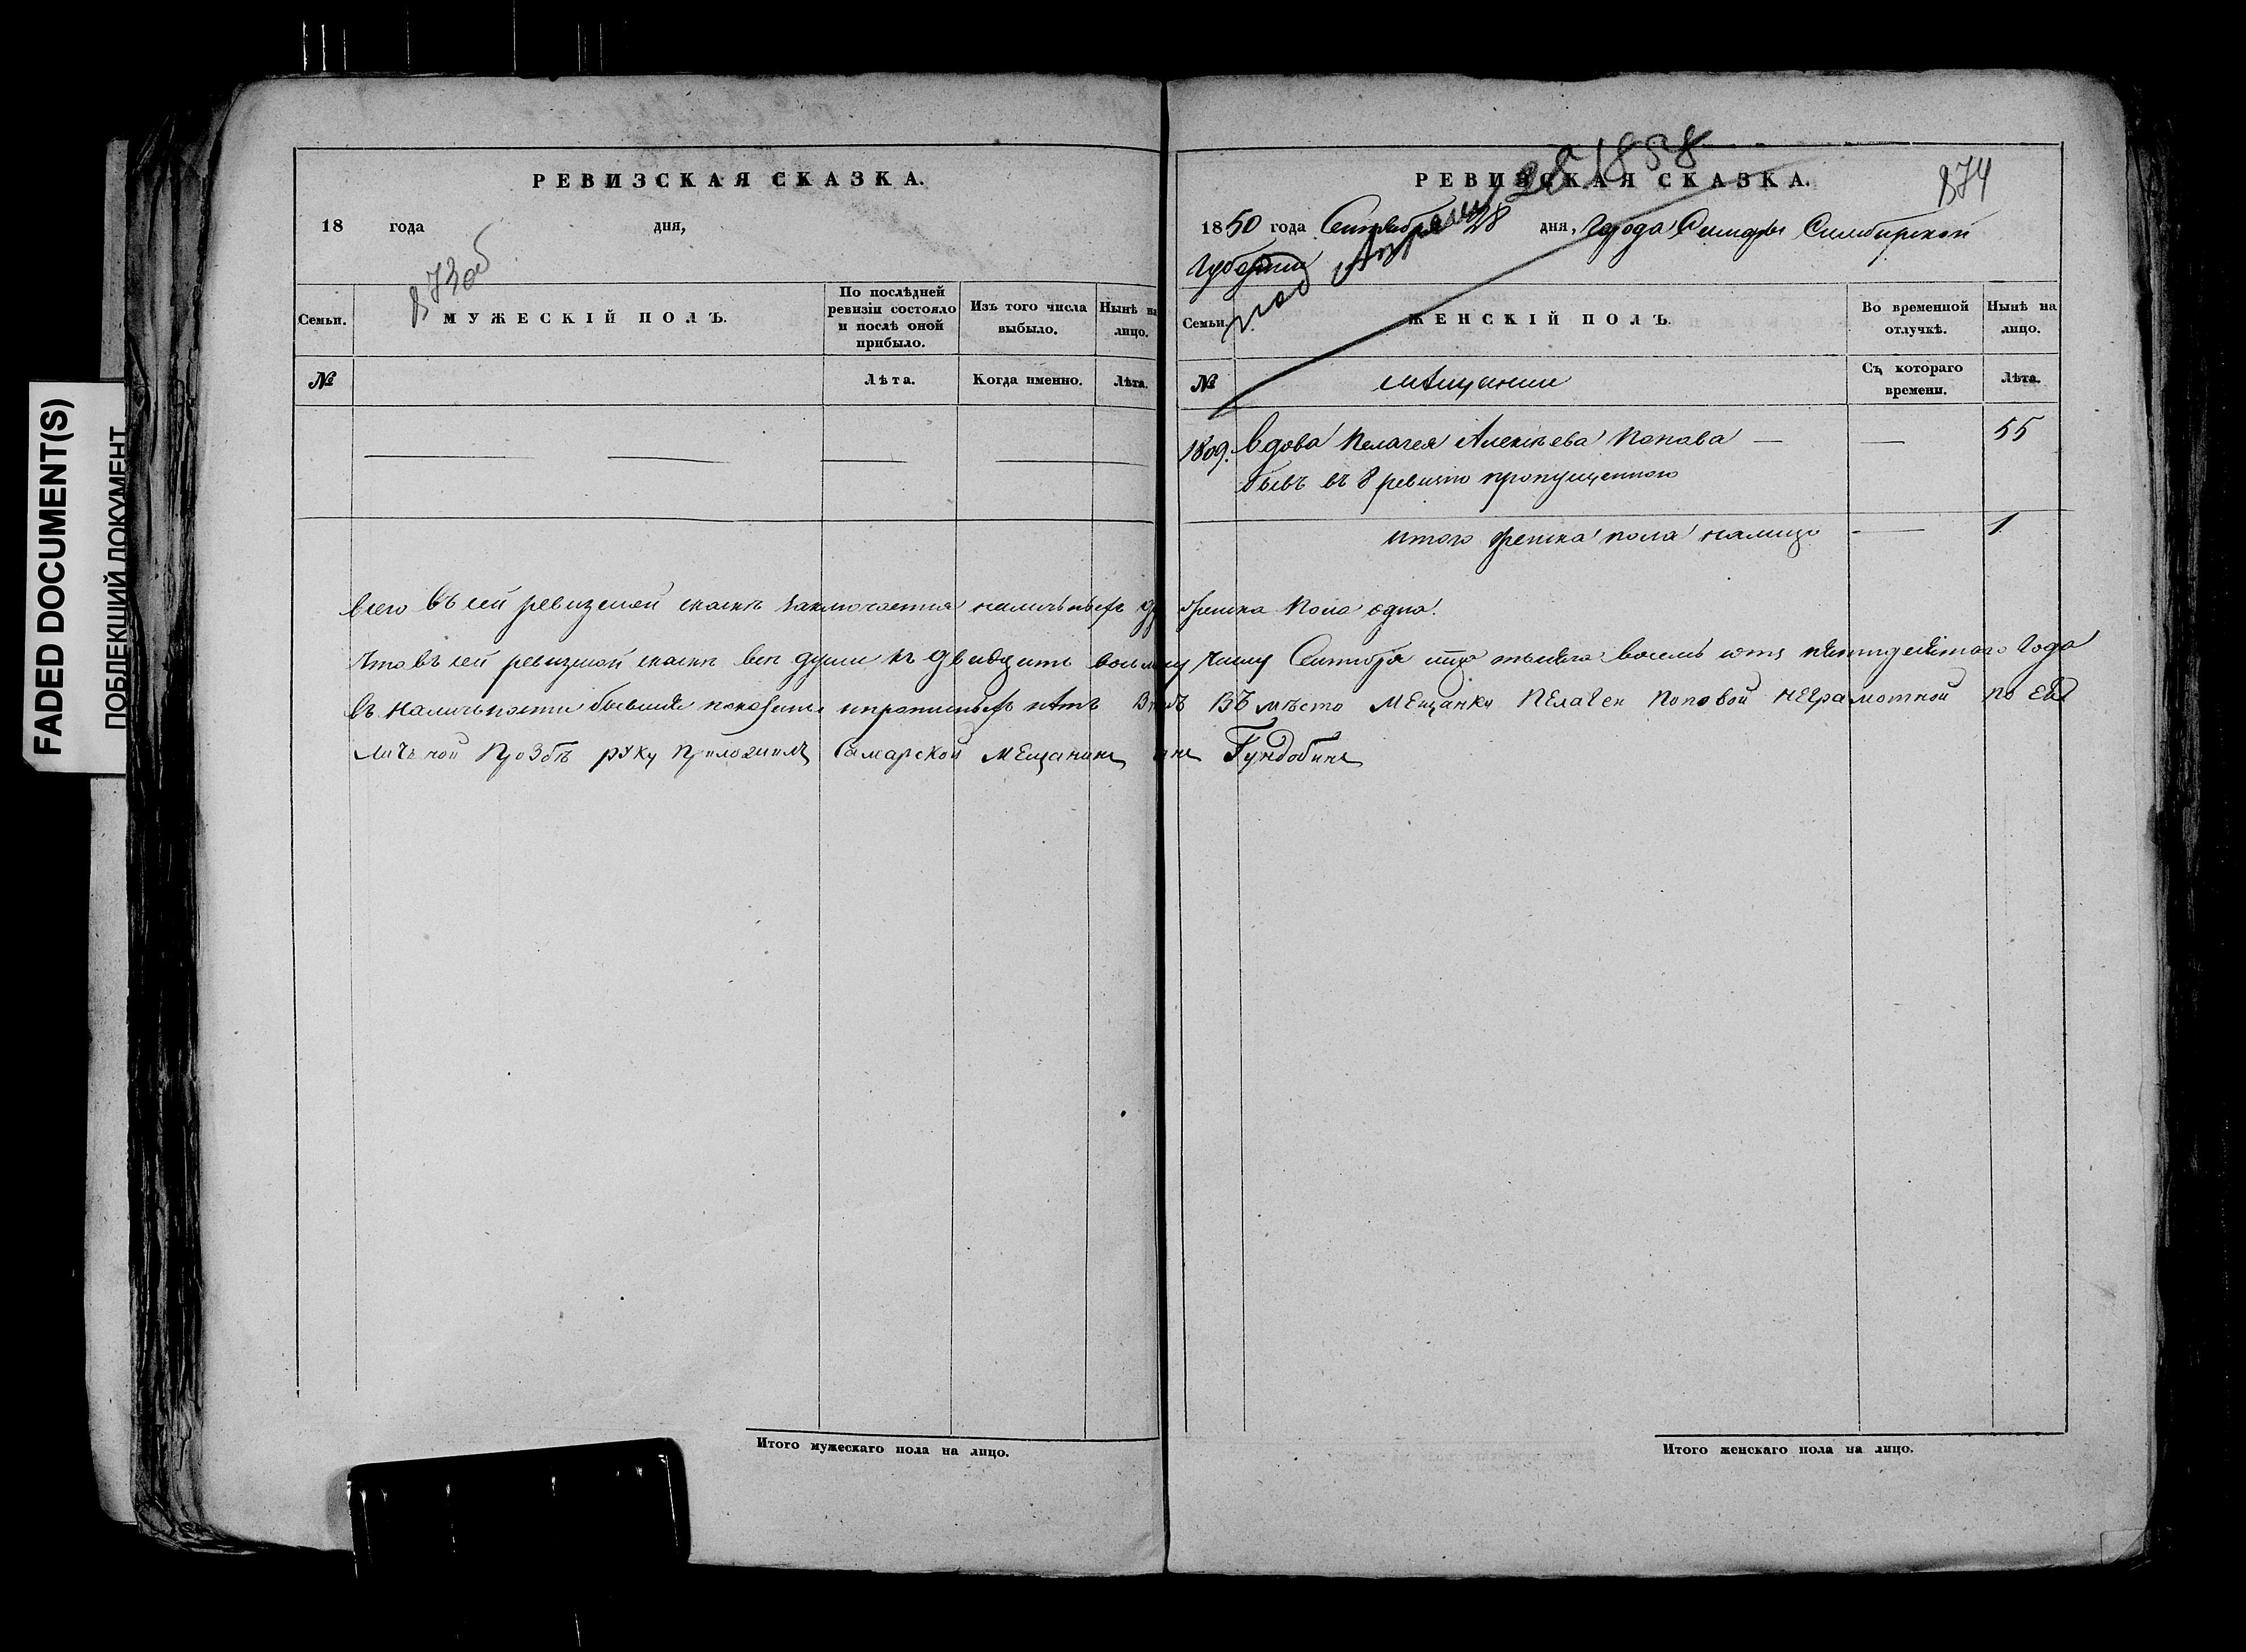 FADED DOCUMENT(S)
ПОБЛЕКШИЙ ДОКУМЕНТ
РЕВИЗСКАЯ СКАЗКА.
18 года дня,
873об
Семьи.
МУЖЕСКІЙ ПОЛЪ.
По послѣдней ревизіи состояло и послѣ оной прибыло.
Изъ того числа выбыло.
Нынѣ на лицо.
№
Лѣта.
Когда именно.
Лѣта.
РЕВИЗСКАЯ СКАЗКА.
874
1850 года Сентября 28 дня, Города Самары Симбирской
Губерніи
1858
Семьи.
ЖЕНСКІЙ ПОЛЪ.
Во временной отлучкѣ.
Нынѣ на лицо.
№
мѣщанин
Съ котораго времени.
Лѣта.
1809. Вдова Пелагея Алексѣева Попава — — 55
бывъ въ 8 ревизію пропущенною
итого женска пола налицо — 1
всего въ сей ревизской сказкѣ заключается наличныхъ женска пола одна.
Что въ сей ревизской сказкѣ всѣ души къ двадцать восьмому числу Сентября тысяча восемь сотъ пятидесятаго года
въ наличности бывшія показаны и прописныхъ нѣтъ въ томъ ВЪмѣсто МЕщанки ПЕлагеи Поповой НЕграмотной по ЕЯ
личъной ПроЗбѣ рУку Приложилъ Самарской МЕщанинъ Гундобинъ
Итого мужескаго пола на лицо.
Итого женскаго пола на лицо.